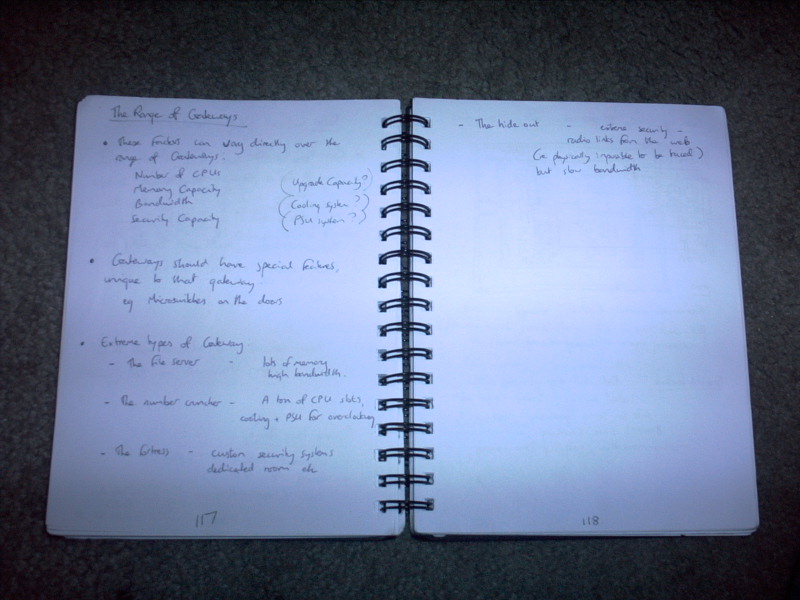 The Range of Gateways
• These factors can vary directly over the
range of Gateways.
Number of CPUs
Memory Capacity (Upgrade Capacity?)
Bandwidth (Cooling system?)
Security Capacity (PSU system?)
• Gateways should have special features,
unique to that gateway.
eg Microswitches on the doors
• Extreme types of Gateway.
- The file server - lots of memory
high bandwidth.
- The number cruncher - A ton of CPU slots,
cooling + PSU for overclocking
- The fortress - custom security systems
dedicated room etc
117
- The hide out - extreme security -
radio links from the web
(ie physically impossible to be traced)
but slow bandwidth
118